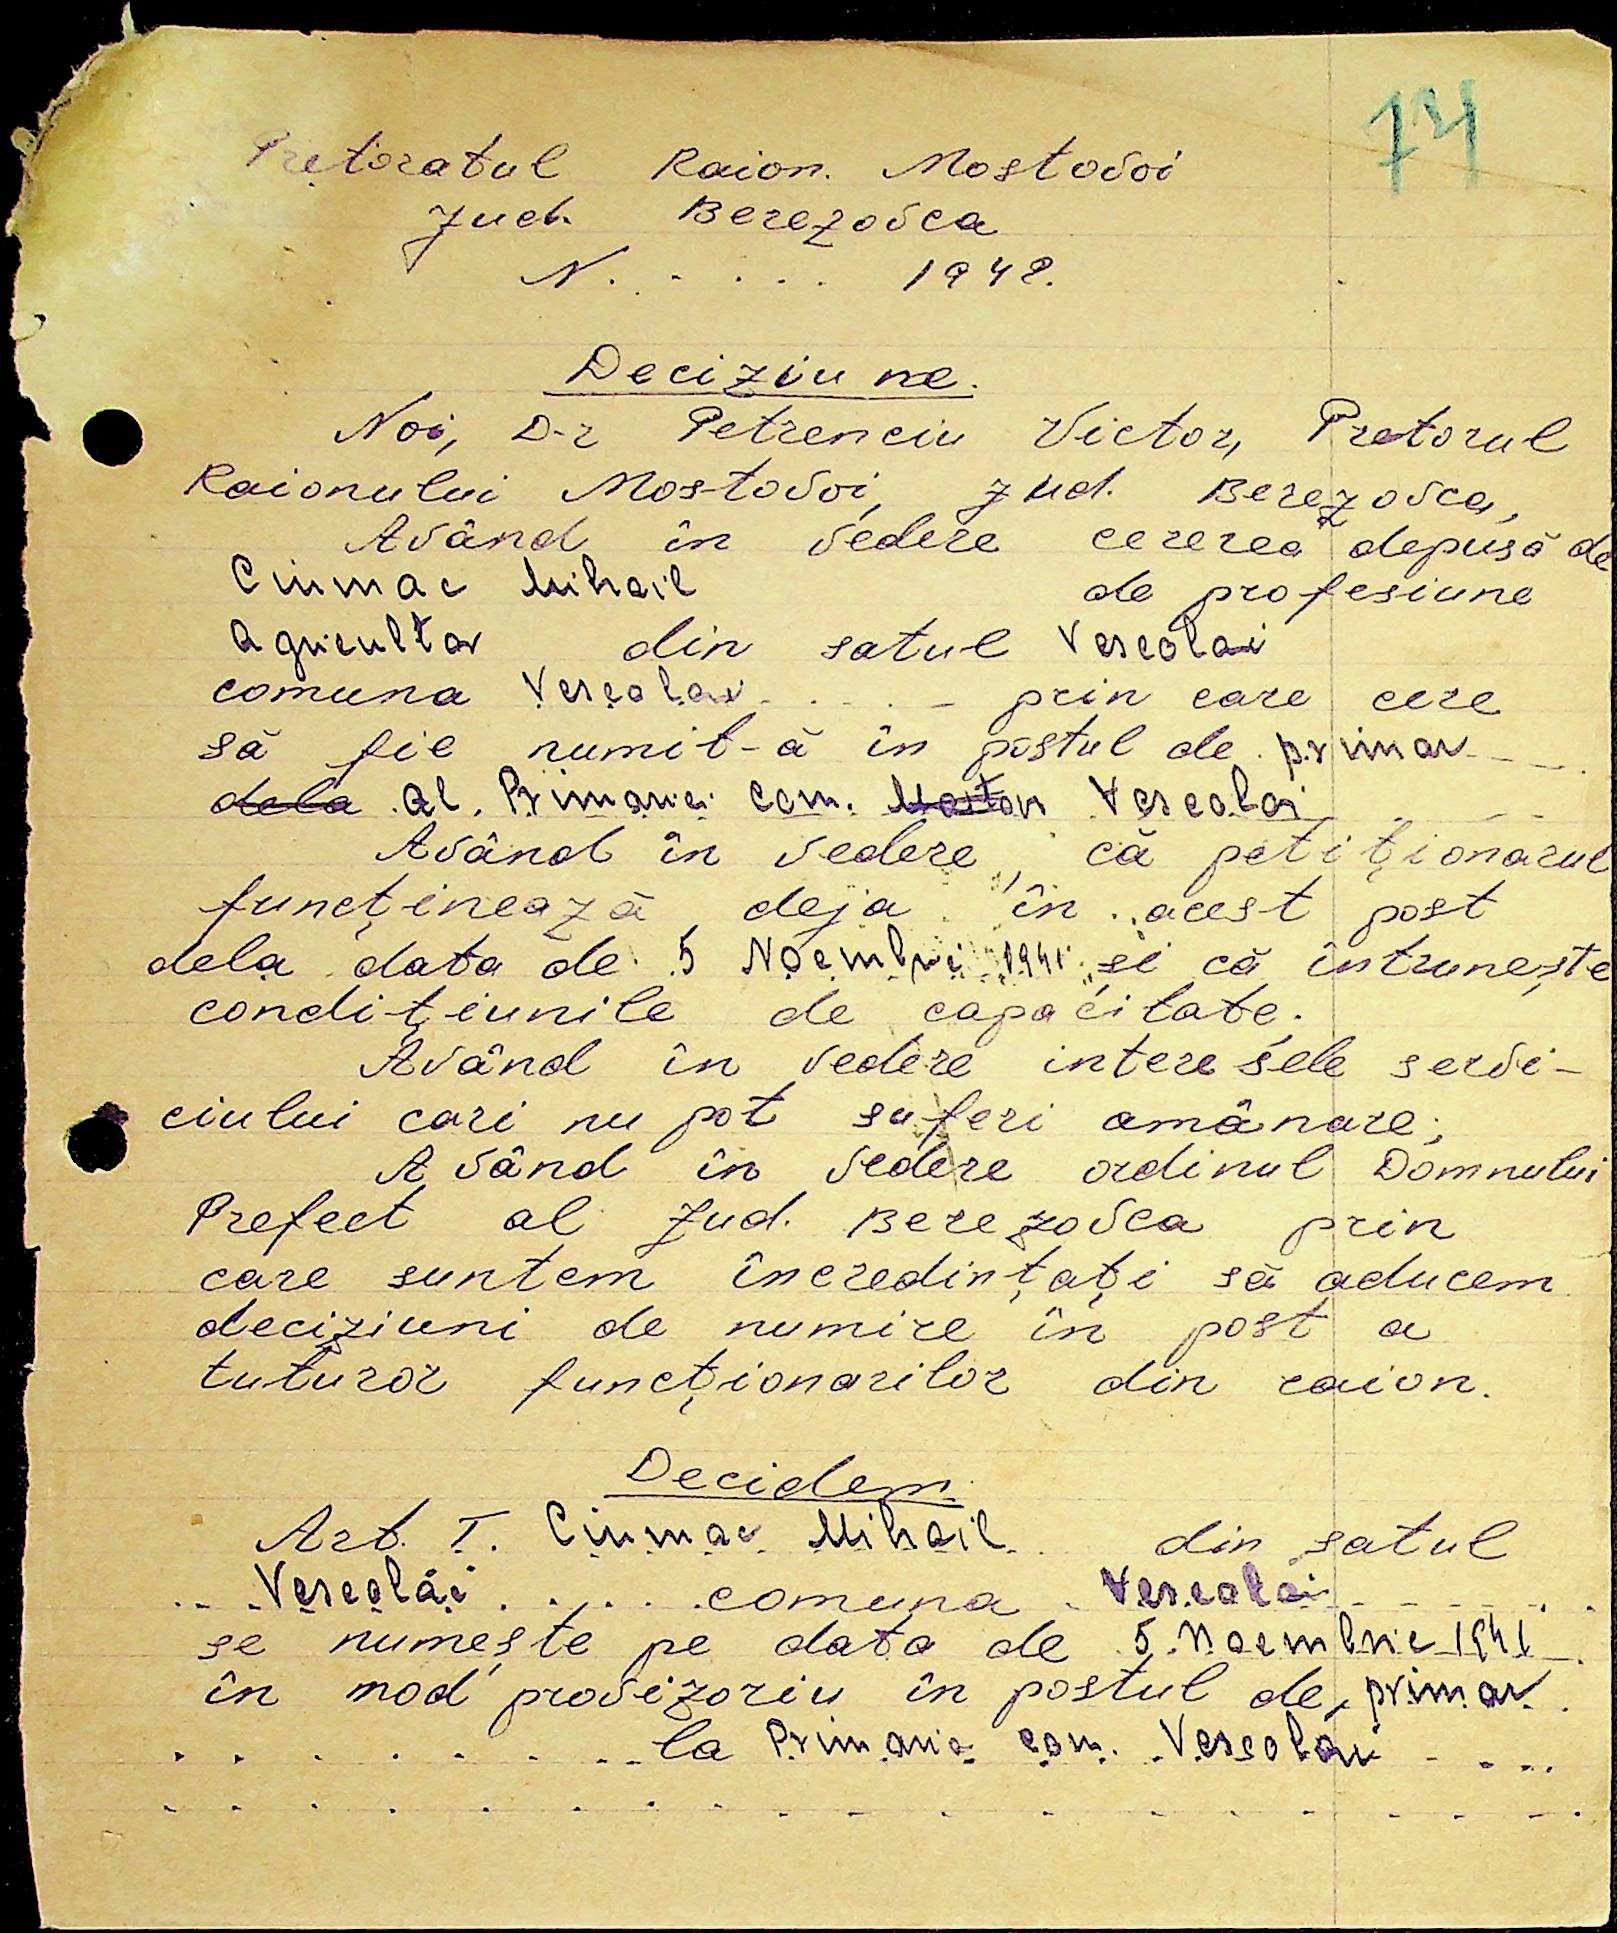 74
Pretoratul Raion. Mostovoi
Jud. Berezovca
N. . . . . . 1942.
Deciziune.
Noi, D-r Petrenciu Victor, Pretorul
Raionului Mostovoi, Jud. Berezovca,
Având în vedere cererea depusă de
Ciumac Mihail de profesiune
agricultor din satul Veseolai
comuna Veseolai . . . . prin care cere
să fie numit-ă în postul de primar
dela al Primariei com. Veseolai
Având în vedere, că petiționarul
funcținează deja în acest post
dela data de 5 Noembrie 1941 și că întrunește
condițiunile de capacitate.
Având în vedere interesele servi-
ciului cari nu pot suferi amânare;
Având în vedere ordinul Domnului
Prefect al Jud. Berezovca prin
care suntem încredințați să aducem
deciziuni de numire în post a
tuturor funcționarilor din raion.
Decidem
Art. I. Ciumac Mihail din satul
Veseolai . . . . . comuna Veseolai
se numește pe data de 5 Noembrie 1941
în mod provizoriu în postul de primar
. . . . . . . . la Primaria com. Veseolai . . . .